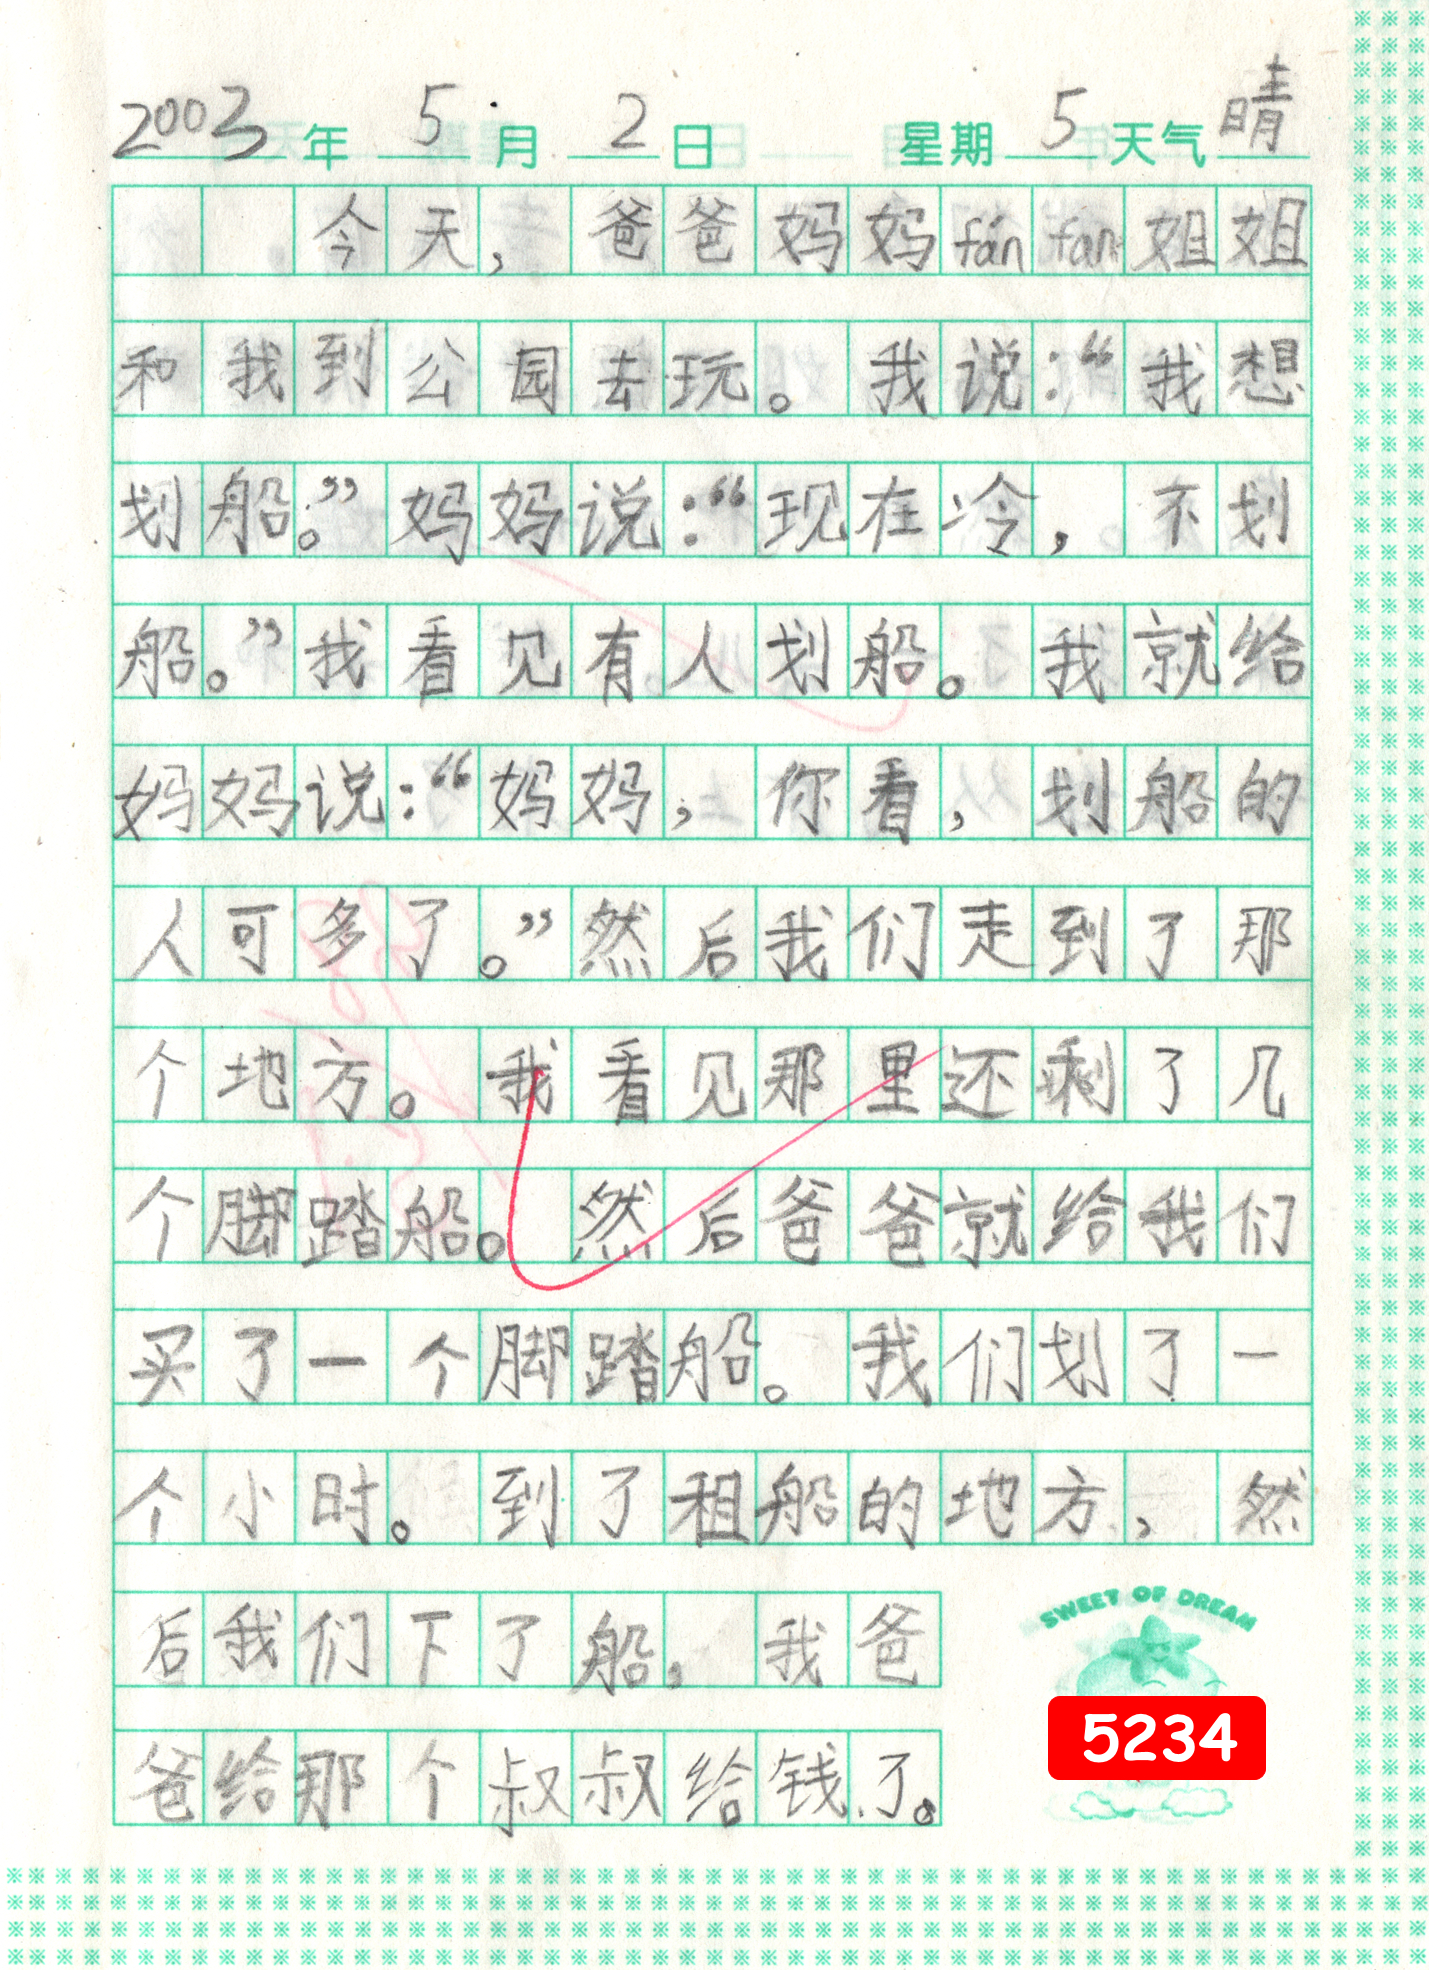 2003年 5月 2日 星期 5 天气 晴
今天，爸爸妈妈fánfan姐姐
和我到公园去玩。我说：“我想
划船。”妈妈说：“现在冷，不划
船。”我看见有人划船。我就给
妈妈说：“妈妈，你看，划船的
人可多了。”然后我们走到了那
个地方。我看见那里还剩了几
个脚踏船。然后爸爸就给我们
买了一个脚踏船。我们划了一
个小时。到了租船的地方，然
后我们下了船，我爸
爸给那个叔叔给钱了。
SWEET OF DREAM
5234